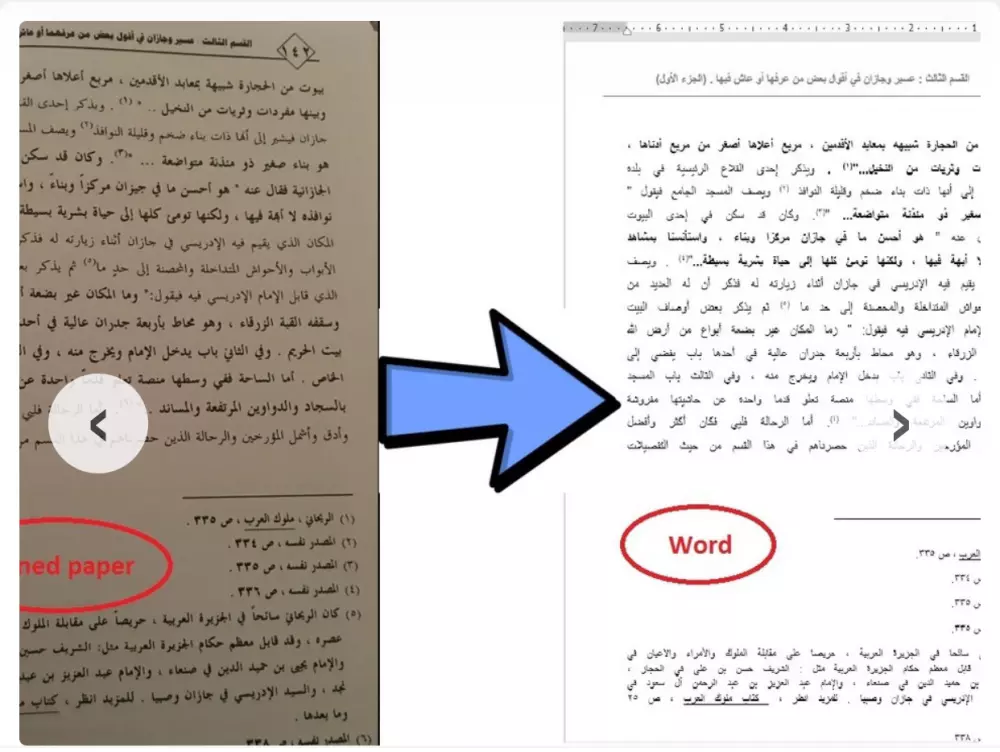 القسم الثالث : عسير وجازان في أقوال بعض من عرفهما أو عاش
١٤٢
بيوت من الحجارة شبيهة بمعابد الأقدمين ، مربع أعلاها أصغر
وبينها مفردات وثريات من النخيل .. " (١) . ويذكر إحدى
جازان فيشير إلى أنها ذات بناء ضخم وقليلة النوافذ(٢) ويصف
هو بناء صغير ذو مئذنة متواضعة ... "(٣). وكان قد سكن
الجازانية فقال عنه " هو أحسن ما في جيزان مركزاً وبناءً ،
نوافذه لا أبهة فيها ، ولكنها تومئ كلها إلى حياة بشرية بسيطة
المكان الذي يقيم فيه الإدريسي في جازان أثناء زيارته له فذكر
الأبواب والأحواش المتداخلة والمحصنة إلى حدٍ ما(٥) ثم يذكر
الذي قابل الإمام الإدريسي فيه فيقول:" وما المكان غير بضعة
وسقفه القبة الزرقاء ، وهو محاط بأربعة جدران عالية في
بيت الحريم . وفي الثاني باب يدخل الإمام ويخرج منه ، وفي
الخاص . أما الساحة ففي وسطها منصة تعلو واحدة عن
بالسجاد والدواوين المرتفعة والمساند . الرحالة فلبي
وأدق وأشمل المؤرخين والرحالة الذين
(١) الريحاني ، ملوك العرب ، ص ٣٣٥ .
(٢) المصدر نفسه ، ص ٣٣٤ .
(٣) المصدر نفسه ، ص ٣٣٥ .
(٤) المصدر نفسه ، ص ٣٣٦ .
(٥) كان الريحاني سائحاً في الجزيرة العربية ، حريصاً على مقابلة الملوك
عصره ، وقد قابل معظم حكام الجزيرة العربية مثل: الشريف حسين
والإمام يحيى بن حميد الدين في صنعاء ، والإمام عبد العزيز بن
نجد ، والسيد الإدريسي في جازان وصبيا . للمزيد انظر ، كتاب
وما بعدها .
(٦) ٣٣٨
ned paper
7 6 5 4 3 2 1
القسم الثالث : عسير وجازان في أقوال بعض من عرفها أو عاش فيها . (الجزء الأول)
من الحجارة شبيهه بمعابد الأقدمين ، مربع أعلاها أصغر من مربع أدناها ،
وثريات من النخيل..."(١) . ويذكر إحدى القلاع الرئيسية في بلده
إلى أنها ذات بناء ضخم وقليلة النوافذ (٢) ويصف المسجد الجامع فيقول "
ذو مئذنة متواضعة... "(٣). وكان قد سكن في إحدى البيوت
عنه " هو أحسن ما في جازان مركزا وبناء ، واستأنسنا بمشاهد
أبهة فيها ، ولكنها تومئ كلها إلى حياة بشرية بسيطة..."(٤) . ويصف
يقيم فيه الإدريسي في جازان أثناء زيارته له فذكر أن له العديد من
المتداخلة والمحصنة إلى حد ما (٥) ثم يذكر بعض أوصاف البيت
الإدريسي فيه فيقول: " زما المكان غير بضعة أبواع من أرض الله
الزرقاء ، وهو محاط بأربعة جدران عالية في أحدها باب يفضي إلى
. وفي الثاني باب يدخل الإمام ويخرج منه ، وفي الثالث باب المسجد
أما الساحة ففي وسطها منصة تعلو قدما واحده عن حاشيتها مفروشة
المرتفعة أما الرحالة فلبي فكان أكثر وأفضل
حصرناهم في هذا القسم من حيث التفصيلات
العرب ، ص ٣٣٥.
ص ٣٣٤.
ص ٣٣٥.
ص ٣٣٥.
سائحا في الجزيرة العربية ، حريصا على مقابلة الملوك والأمراء والاعيان في
قابل معظم حكام الجزيرة العربية مثل : الشريف حسن بن على في الحجاز ،
بن حميد الدين في صنعاء ، والإمام عبد العزيز بن عبد الرحمن آل سعود في
الإدريسي في جازان وصبيا . للمزيد انظر ، كتاب ملوك العرب ، ص ٢٥
ص ٣٣٨.
Word